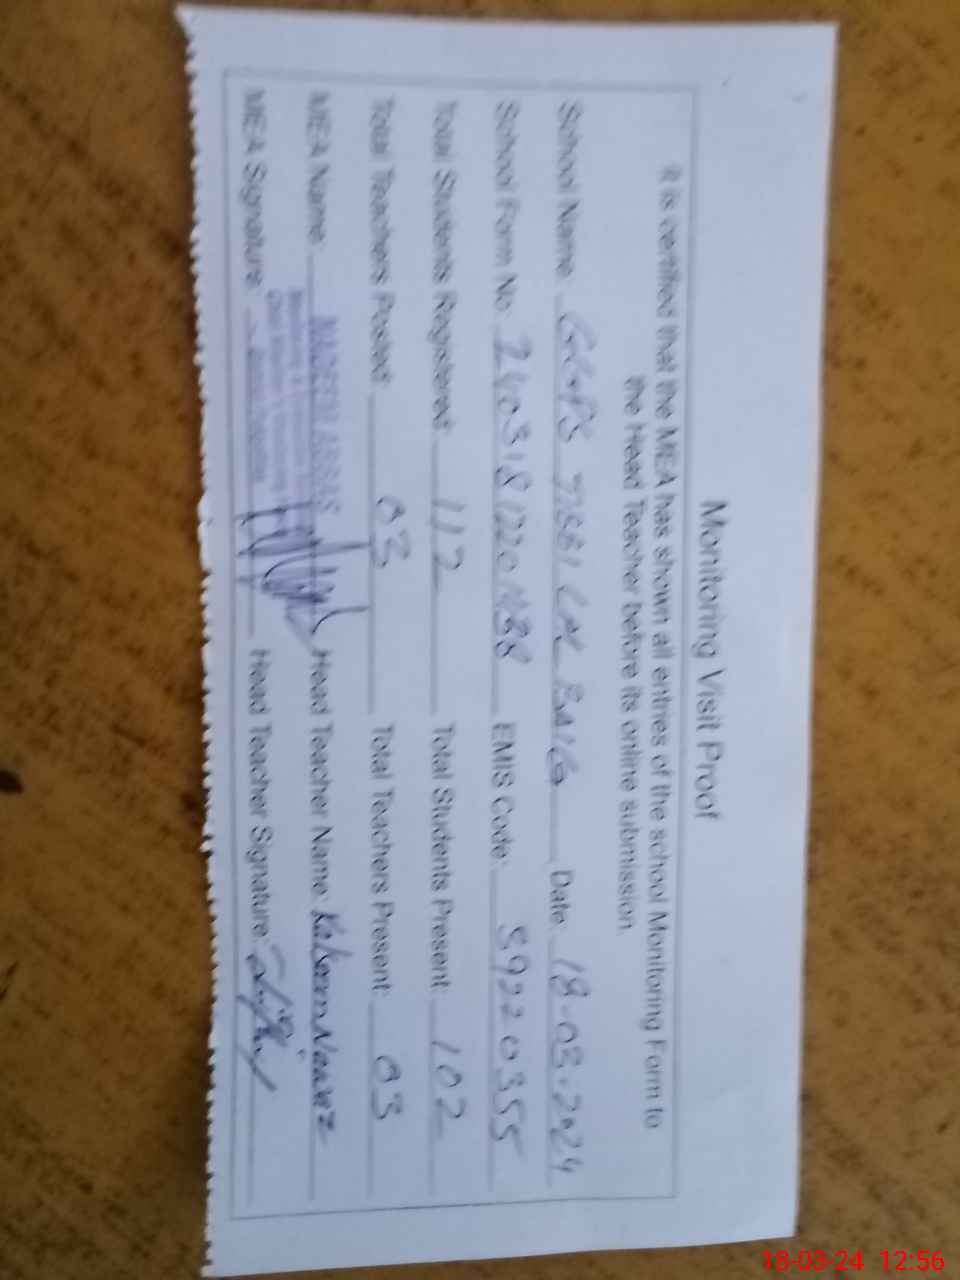 Monitoring Visit Proof
It is certified that the MEA has shown all entries of the school Monitoring Form to
the Head Teacher before its online submission
School Name: GGPS Date: 18-03-2024
School Form No: EMIS Code: 59220355
Total Students Registered: 112 Total Students Present: 102
Total Teachers Posted: 03 Total Teachers Present: 03
MEA Name: ABBAS Head Teacher Name: Nawaz
MEA Signature: Head Teacher Signature:
18-03-24 12:56